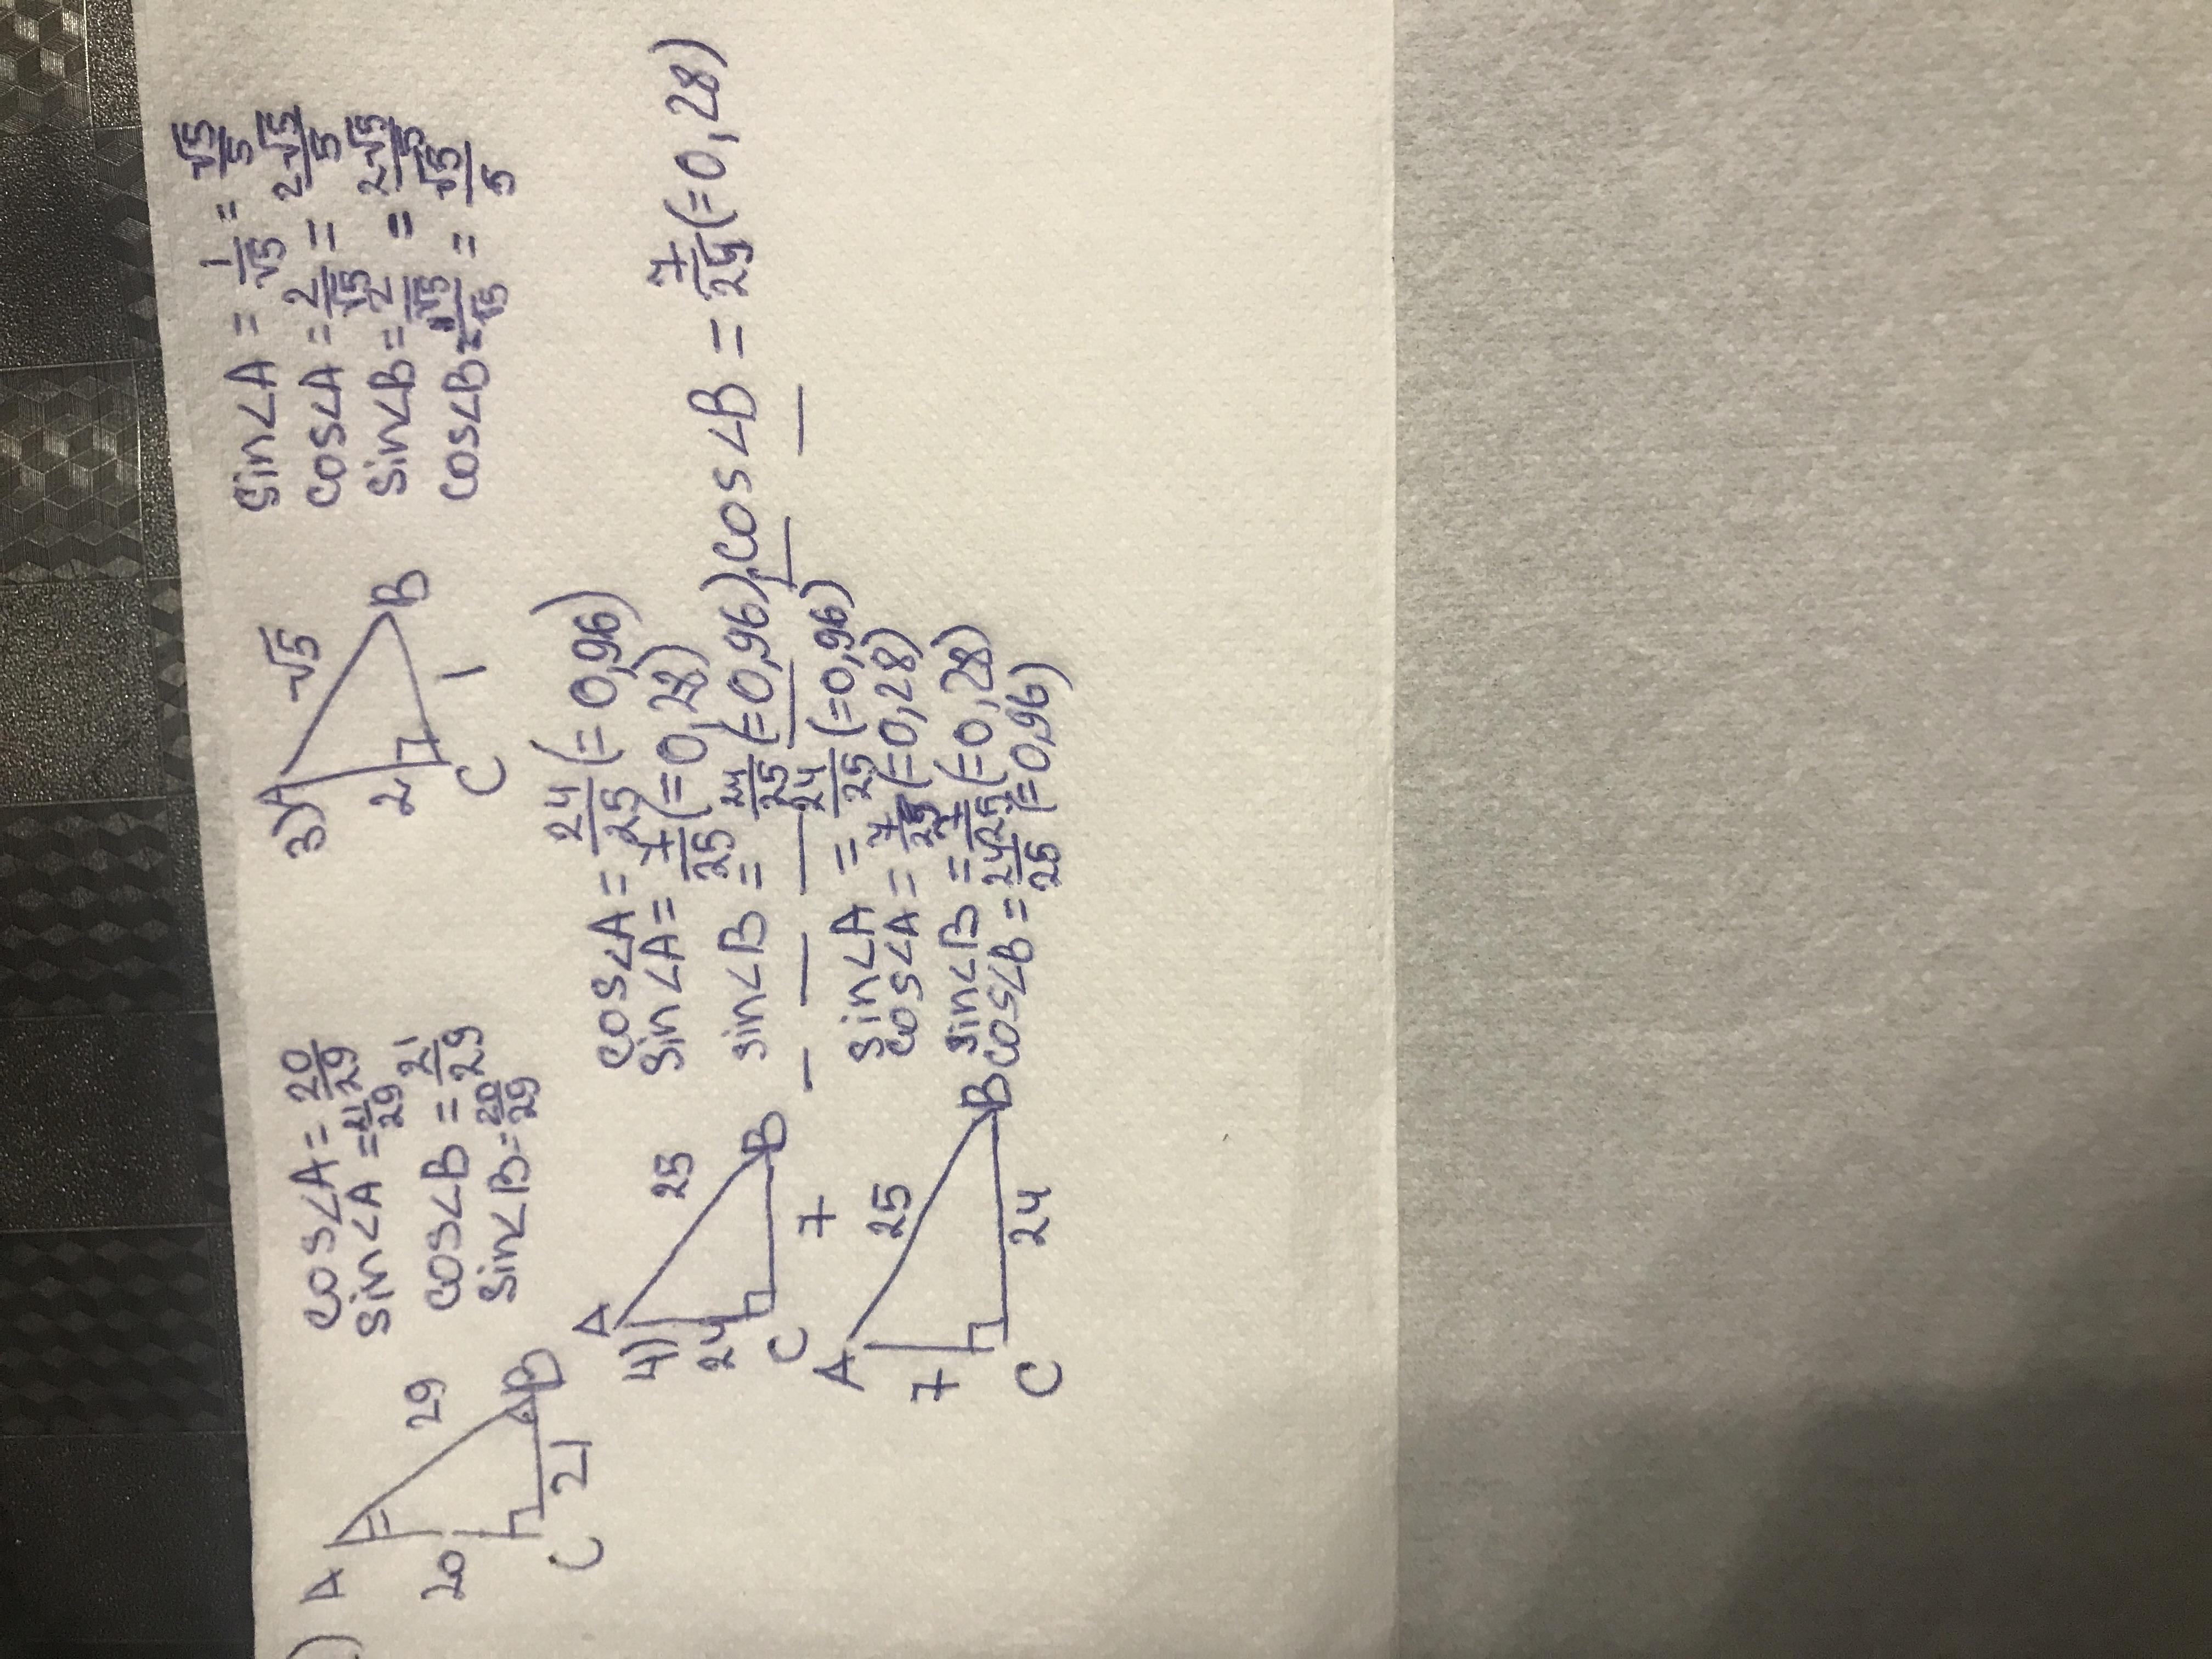 ) A
29
20
C
21
B
cos∠A = 20/29
sin∠A = 21/29
cos∠B = 21/29
sin∠B = 20/29
3) A
√5
2
C
1
B
sin∠A = 1/√5 = √5/5
cos∠A = 2/√5 = 2√5/5
sin∠B = 2/√5 = 2√5/5
cos∠B = 1/√5 = √5/5
4) A
25
24
C
7
B
cos∠A = 24/25 (= 0,96)
sin∠A = 7/25 (= 0,28)
sin∠B = 24/25 (= 0,96), cos∠B = 7/25 (= 0,28)
A
25
7
C
24
B
sin∠A = 24/25 (= 0,96)
cos∠A = 7/25 (= 0,28)
sin∠B = 7/25 (= 0,28)
cos∠B = 24/25 (= 0,96)